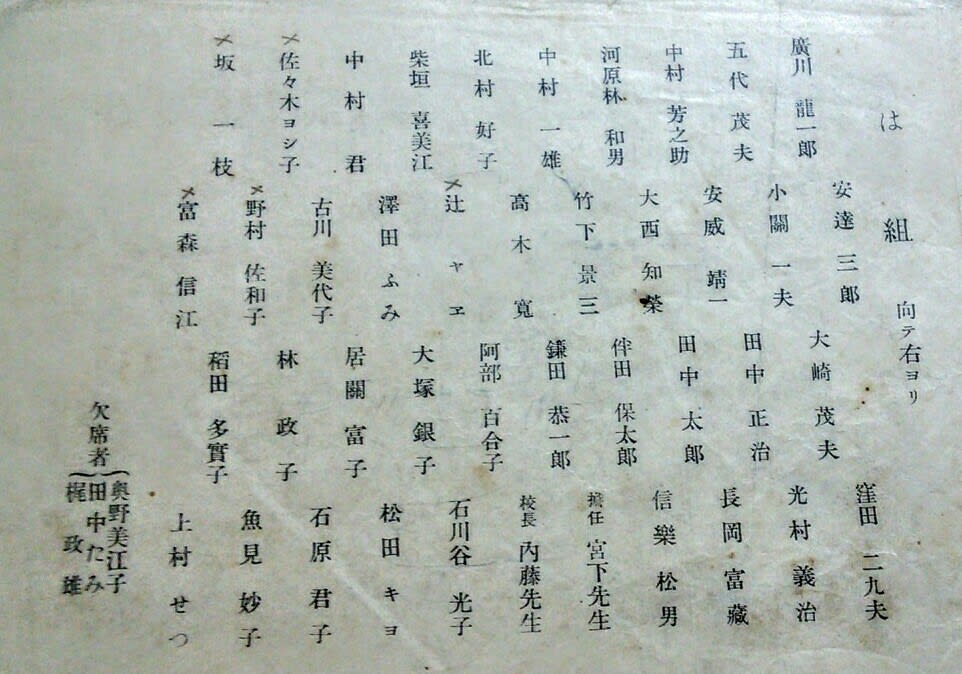 は組 向テ右ヨリ
廣川 龍一郎
五代 茂夫
中村 芳之助
河原林 和男
中村 一雄
北村 好子
柴垣 喜美江
中村 君
佐々木ヨシ子
坂 一枝
安達 三郎
小關 一夫
安威 靖一
大西 知榮
竹下 景三
高木 寬
辻 ャヱ
澤田 ふみ
古川 美代子
野村 佐和子
富森 信江
大崎 茂夫
田中 正治
田中 太郎
伴田 保太郎
鎌田 恭一郎
阿部 百合子
大塚 銀子
居關 富子
林 政子
稻田 多實子
窪田 二九夫
光村 義治
長岡 富藏
信樂 松男
擔任 宮下先生
校長 內藤先生
石川谷 光子
松田 キョ
石原 君子
魚見 妙子
上村 せつ
欠席者
奧野美江子
田中たみ
梶 政雄